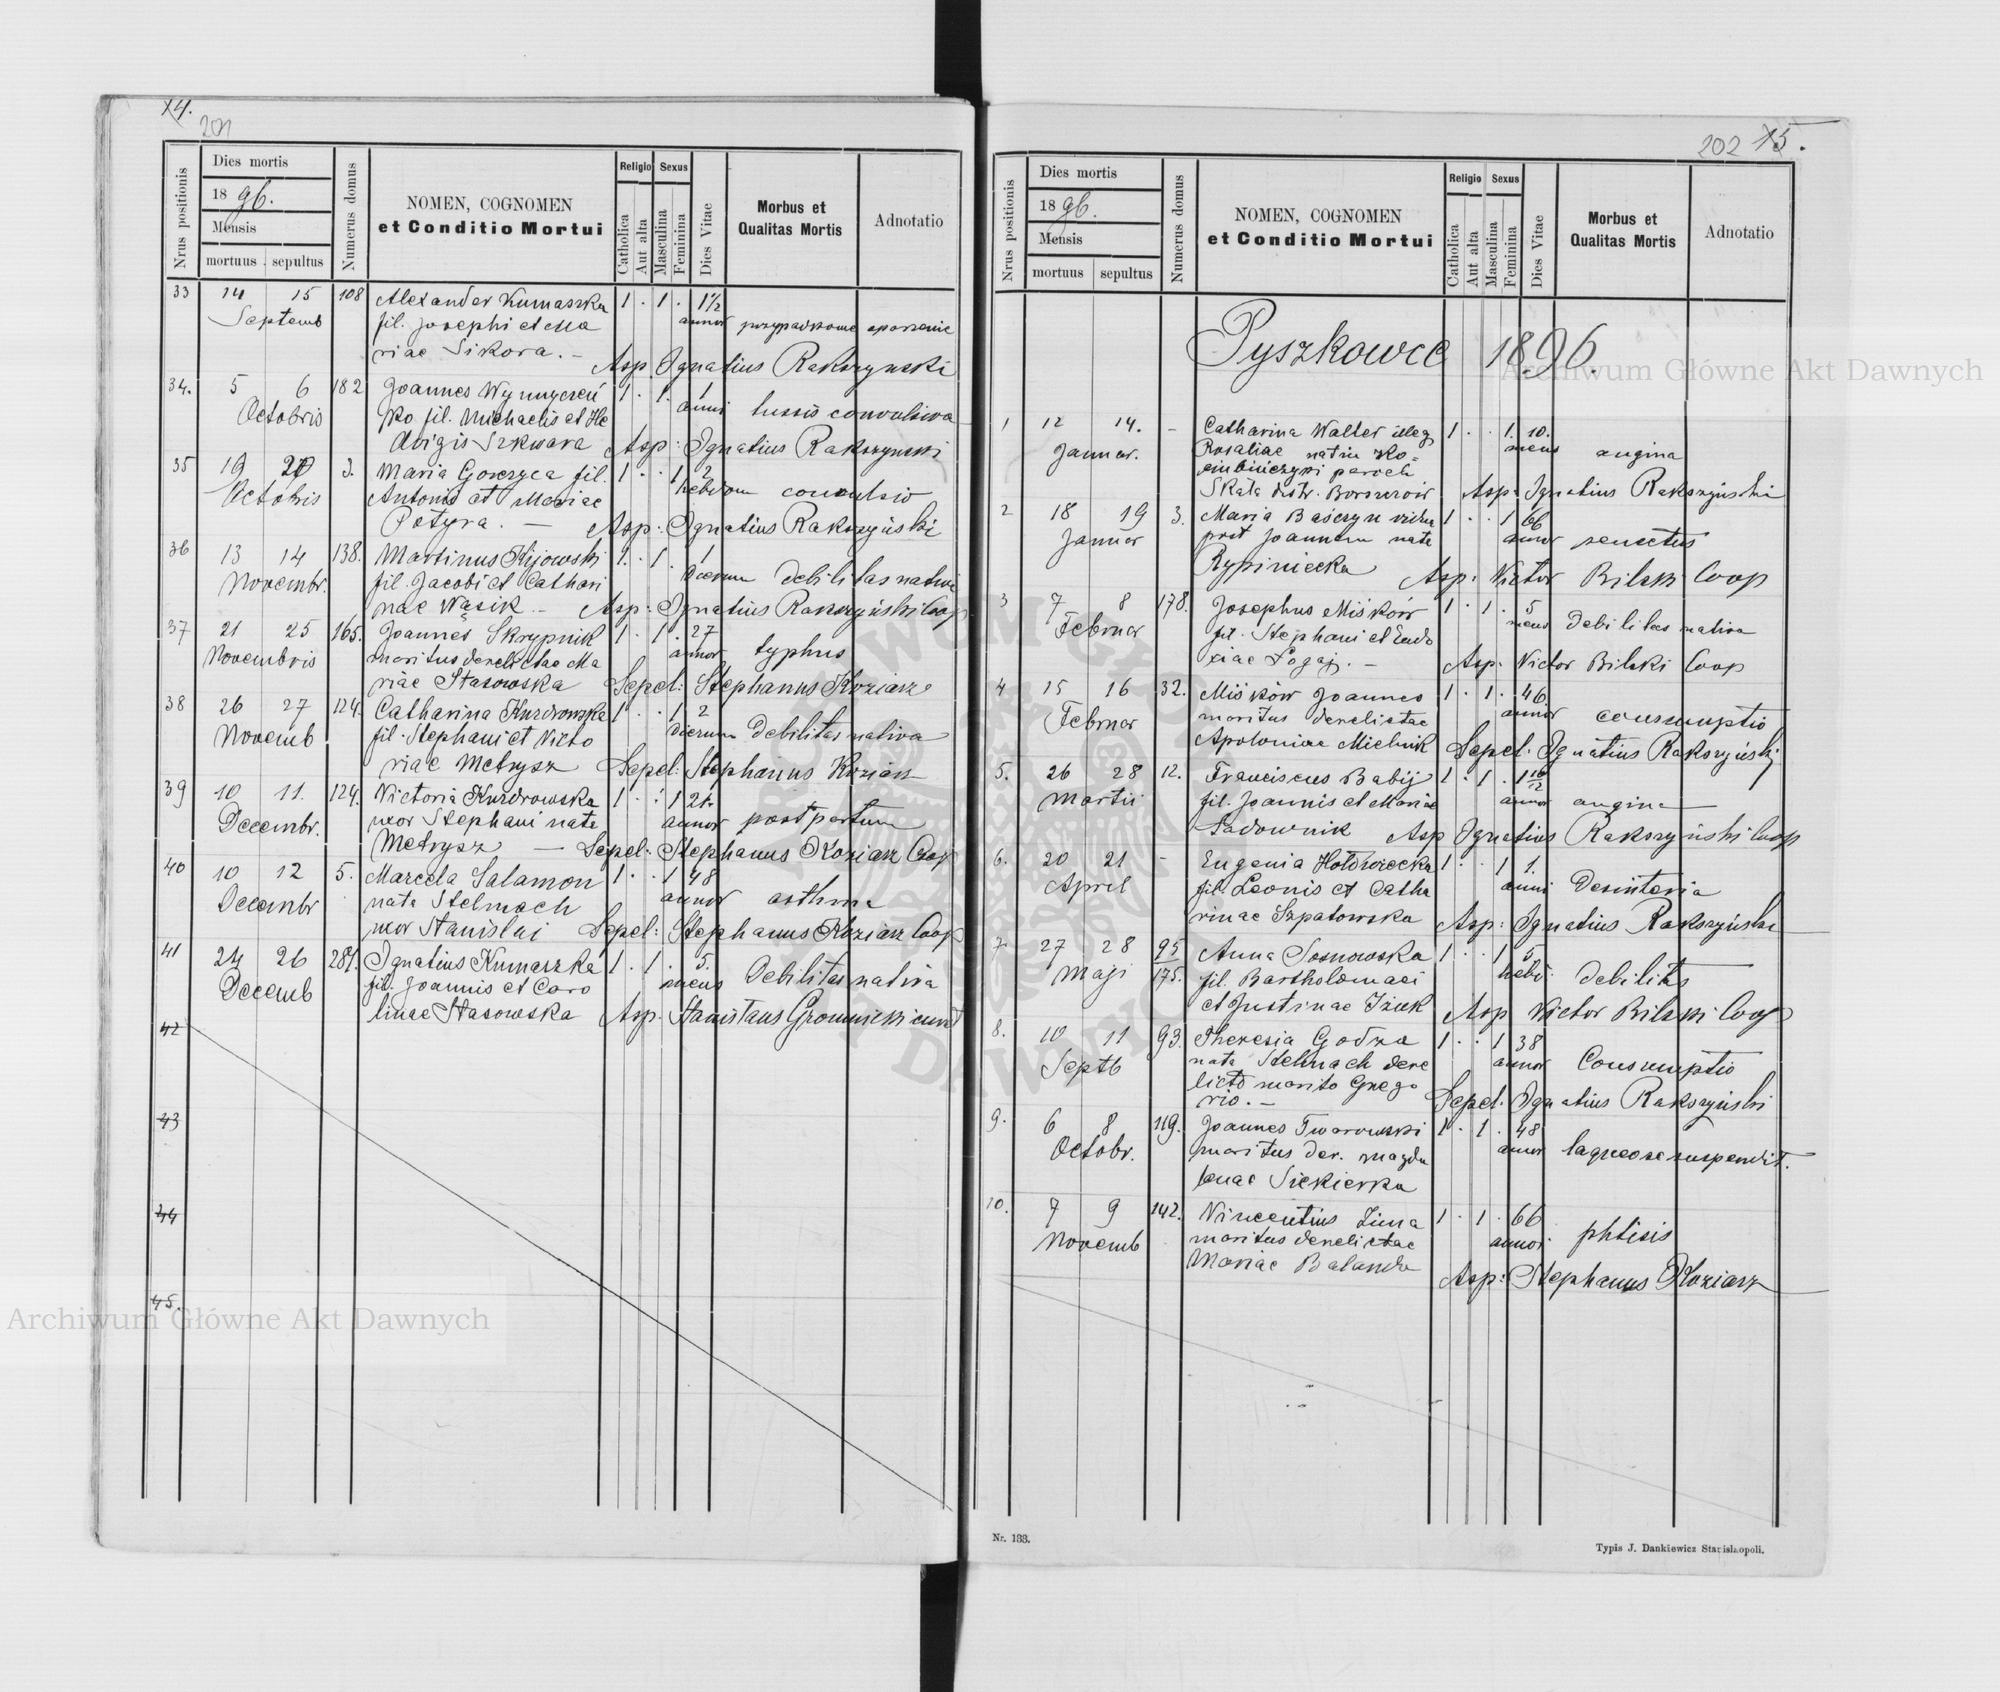 14.
201
Nrus positionis
Dies mortis
1896.
Mensis
mortuus sepultus
Numerus domus
NOMEN, COGNOMEN
et Conditio Mortui
Religio
Sexus
Catholica
Aut alta
Masculina
Feminina
Dies Vitae
Morbus et
Qualitas Mortis
Adnotatio
33 14 15 108 Alexander Kumaszka 1 . 1 . 1½
Septemb fil. Josephi et Ma annor
riae Sikora. - Asp. Ignatius Rakszynski
34. 5 6 182 Joannes 1 . 1 . 1
Octobris ko fil. Michaelis et He anni tussis convulsiva
dvigis Szkwara Asp: Ignatius Rakszynski
35 19 20 3. Maria Gorczyca fil. 1 . . 1 2
Octobris Antonii et Mariae hebdom convulsio
Potyra. - Asp: Ignatius Rakszyński
36 13 14 138. Martinus Kijowski 1 . 1 . 1
Novembr. fil. Jacobi et Cathari dierum debilitas nativa
nae Wąsik - Asp: Ignatius Rakszyński Coop
37 21 25 165. Joannes Skrypnik 1 . 1 . 27
Novembris maritus derelictae Ma annor typhus
riae Stasowska Sepel: Stephanus Koziarz
38 26 27 124. Catharina Kurdrowska 1 . . 1 2
Novemb fil. Stephani et Victo dierum debilitas nativa
riae Metrysz Sepel: Stephanus Koziarz
39 10 11. 124. Victoria Kurdrowska 1 . . 1 21.
Decembr. uxor Stephani nata annor post partum
Metrysz - Sepel: Stephanus Koziarz Coop
40 10 12 5. Marcela Salamon 1 . . 1 48
Decembr nata Stelmach annor asthma
uxor Stanislai Sepel: Stephanus Koziarz Coop
41 24 26 281. Ignatius Kumaszka 1 . 1 . 5.
Decemb fil. Joannis et Caro mens Debilitas nativa
linae Stasowska Asp. Stanislaus Gromnicki
42
43
44
45.
202 15.
Nrus positionis
Dies mortis
1896.
Mensis
mortuus sepultus
Numerus domus
NOMEN, COGNOMEN
et Conditio Mortui
Religio
Sexus
Catholica
Aut alta
Masculina
Feminina
Dies Vitae
Morbus et
Qualitas Mortis
Adnotatio
Pyszkowce 1896.
1 12 14. - Catharina Walter illeg. 1 . . 1. 10.
Januar. Rosaliae mens angina
paroch
Skała distr. Asp: Ignatius Rakszyński
2 18 19 3. Maria vidua 1 . . 1 66
Januar post Joannem nata annor senectus
Rypiniecka Asp: Victor Bilski Coop
3 7 8 178. Josephus Miśków 1 . 1 . 5
Februar fil. Stephani et Eudo mens debilitas nativa
xiae Pogaj. - Asp. Victor Bilski Coop
4 15 16 32. Miśków Joannes 1 . 1 . 46
Februar maritus derelictae annor consumptio
Apoloniae Mielnik Sepel: Ignatius Rakszyński
5. 26 28 12. Franciscus Babij 1 . 1 . 1 10/12
Martii fil. Joannis et Mariae annor angina
Sadownik Asp Ignatius Rakszyński Coop
6. 20 21 - Eugenia 1 . . 1 1.
April fil. Leonis et Catha anni Desinteria
rinae Szpatowska Asp: Ignatius Rakszyński
7. 27 28 95/175. Anna Sosnowska 1 . . 1 5
Maji fil. Bartholomaei hebd. debilitas
et Justinae Iżuk Asp Victor Bilski Coop
8. 10 11 93. Theresia Godza 1 . . 1 38
Septb nata Stelmach dere annor Consumptio
licto marito Grego
rio. - Sepel. Ignatius Rakszyński
9. 6 8 119. Joannes Tworowski 1 . 1 . 48
Octobr. maritus der. Magda annor laqueo se suspendit.
lenae Siekierka
10. 7 9 142. Vincentius Zima 1 . 1 . 66
Novemb maritus derelictae annor phtisis
Mariae Balanda Asp: Stephanus Koziarz
Nr. 133.
Typis J. Dankiewicz Stanislaopoli.
Archiwum Główne Akt Dawnych
Archiwum Główne Akt Dawnych